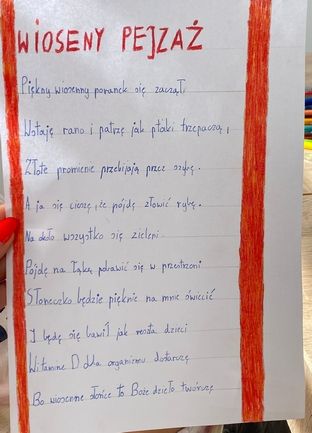 WIOSENY PEJZAŻ
Piękny wiosenny poranek się zaczął,
Wstaję rano i patrzę jak ptaki trzepaczą,
Złote promienie przebijają przez szybę.
A ja się cieszę, że pójdę złowić rybę.
Na około wszystko się zieleni
Pójdę na łąkę pobawić się w przestrzeni
Słoneczko będzie pięknie na mnie świecić
I będę się bawił jak reszta dzieci
Witamine D dla organizmu dotarczę
Bo wiosenne słońce to Boże dzieło twórcze